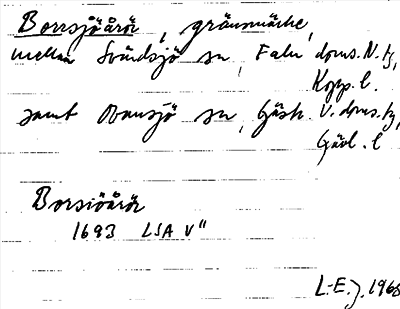 Borrsjöårör, gränsmärke,
mellan Svärdsjö sn, Falu doms. N. tg,
Kopp. l.
samt Ovansjö sn, Gästr. V. doms. tg,
Gävl. l
Borsiöårör
1693 LSA V"
L-E. J. 1968